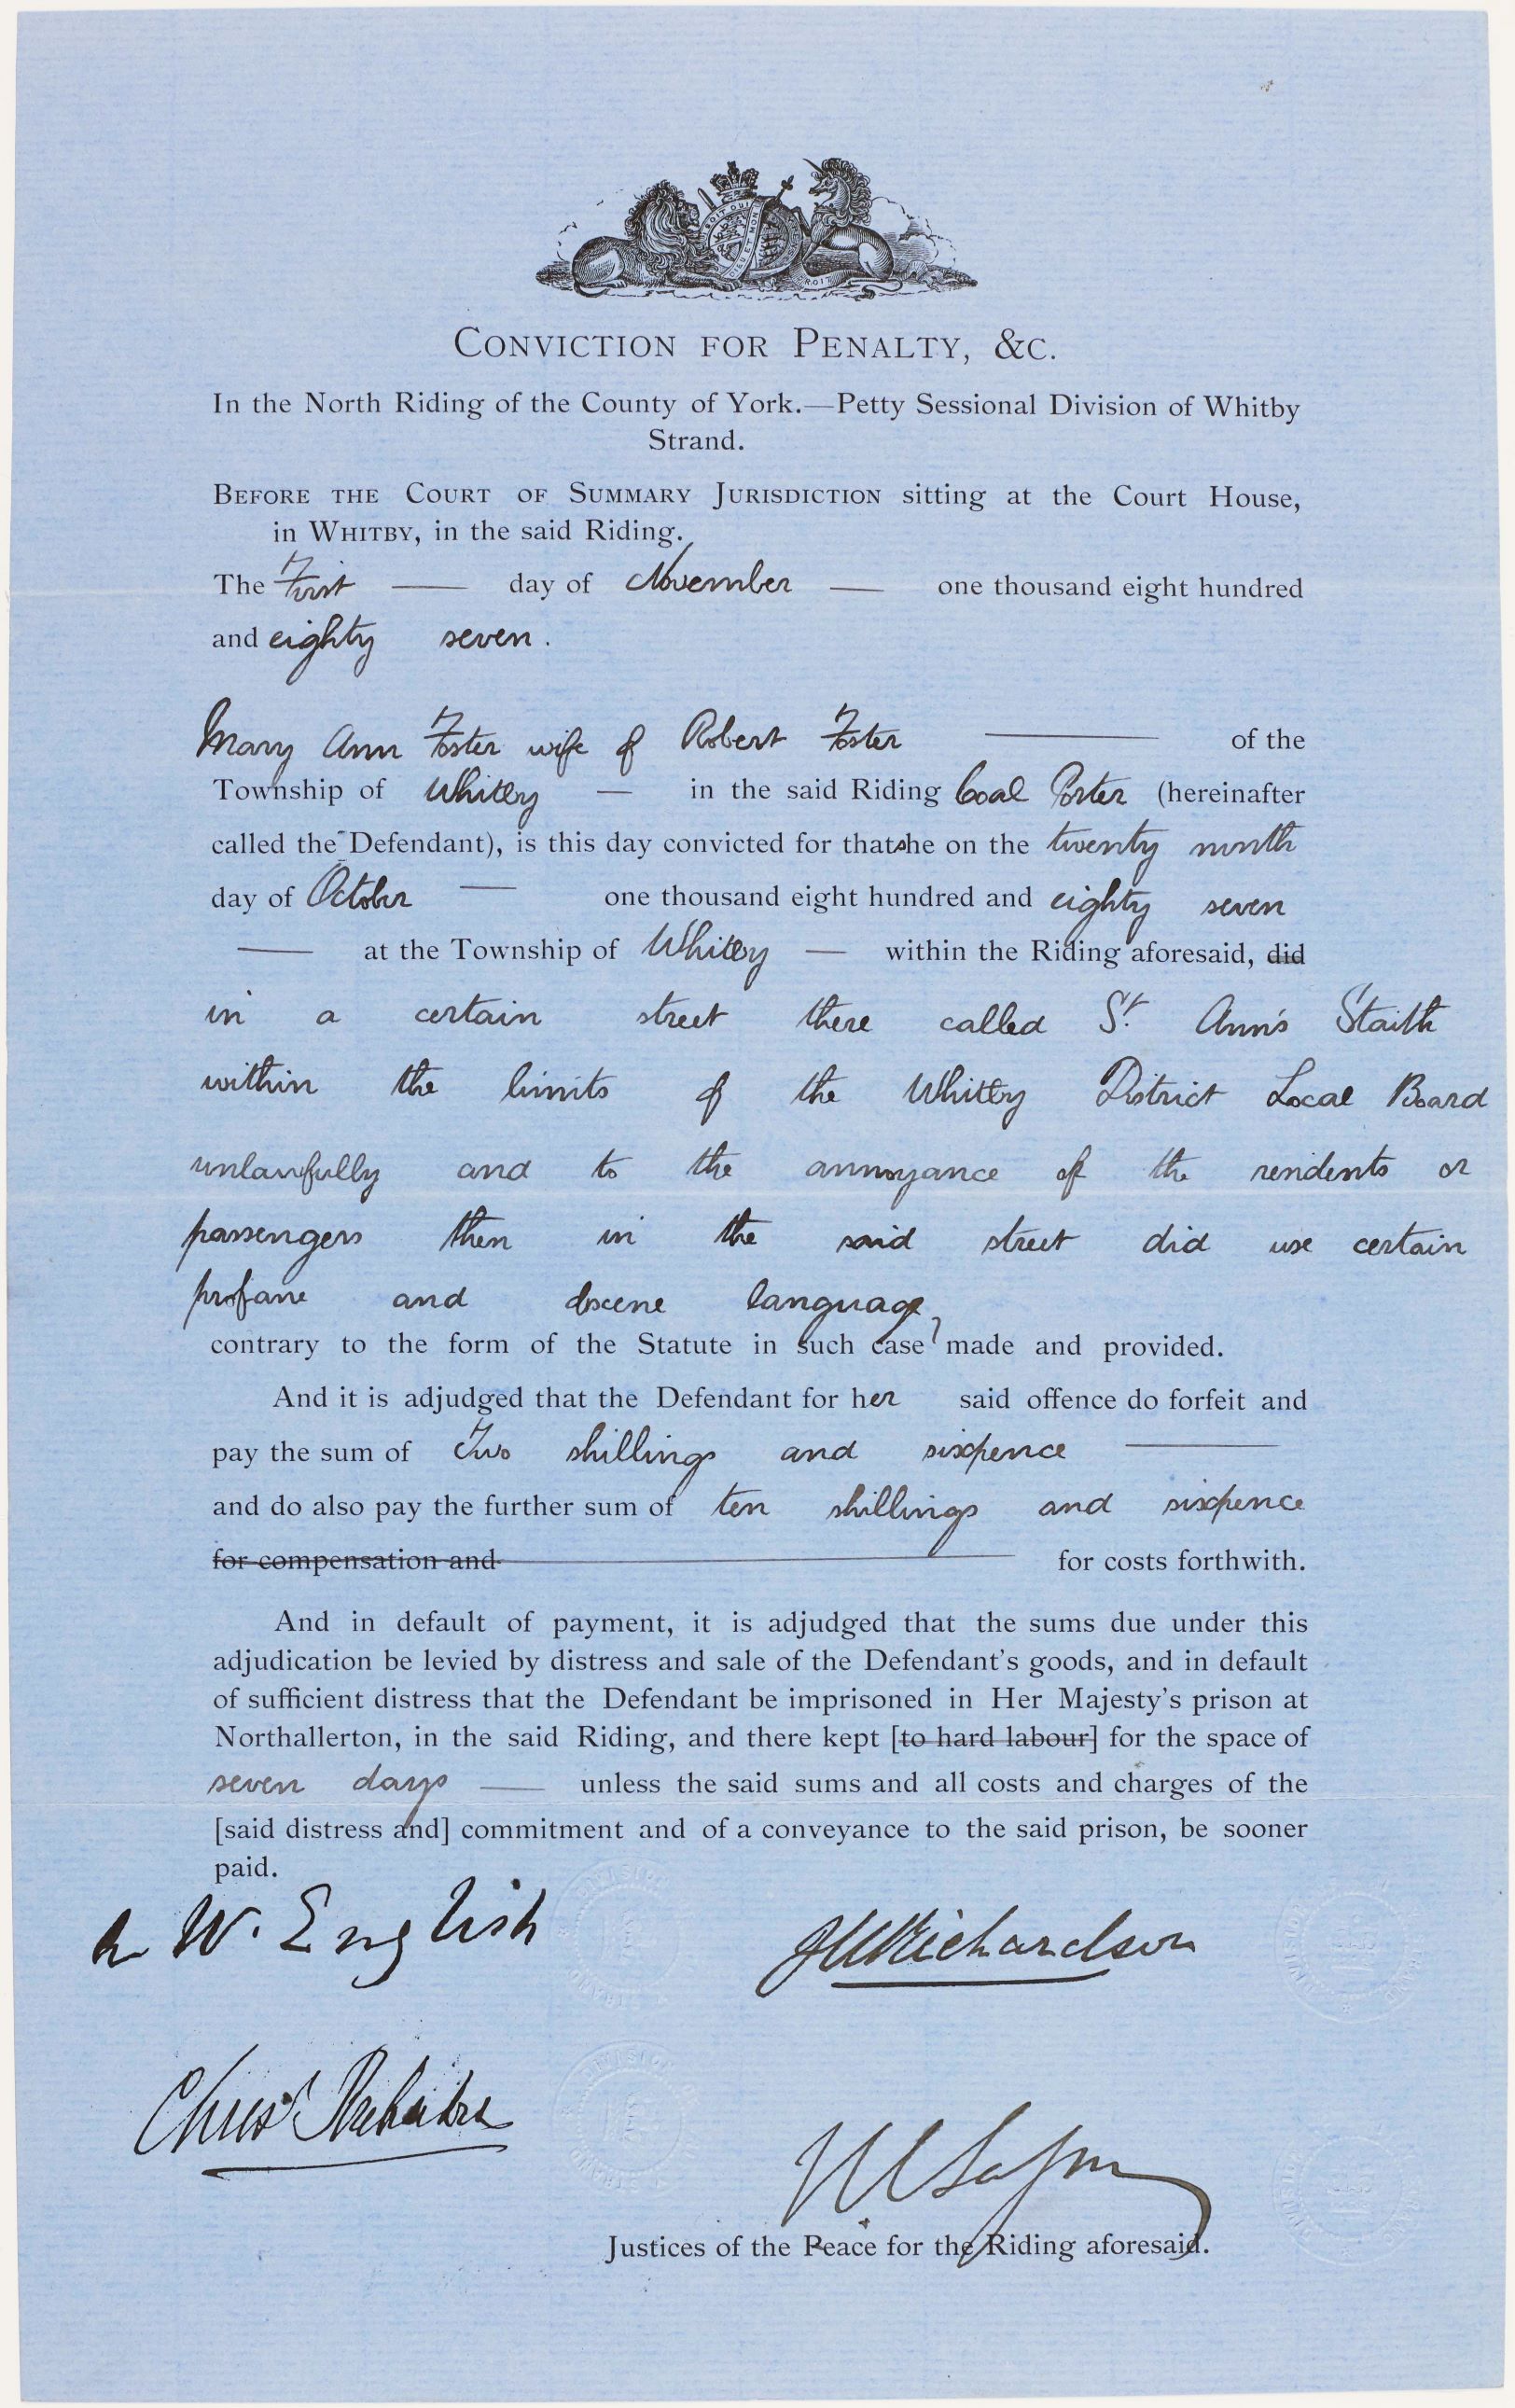 CONVICTION FOR PENALTY, &C.
In the North Riding of the County of York.—Petty Sessional Division of Whitby
Strand.
BEFORE THE COURT OF SUMMARY JURISDICTION sitting at the Court House,
in WHITBY, in the said Riding.
The First — day of November — one thousand eight hundred
and eighty seven.
Mary Ann Foster wife of Robert Foster — of the
Township of Whitby — in the said Riding Coal Porter (hereinafter
called the Defendant), is this day convicted for that she on the twenty ninth
day of October — one thousand eight hundred and eighty seven
— at the Township of Whitby — within the Riding aforesaid, did
in a certain street there called St. Ann's Staith
within the limits of the Whitby District Local Board
unlawfully and to the annoyance of the residents or
passengers then in the said street did use certain
profane and obscene language,
contrary to the form of the Statute in such case made and provided.
And it is adjudged that the Defendant for her said offence do forfeit and
pay the sum of Two shillings and sixpence —
and do also pay the further sum of ten shillings and sixpence
for compensation and — for costs forthwith.
And in default of payment, it is adjudged that the sums due under this
adjudication be levied by distress and sale of the Defendant's goods, and in default
of sufficient distress that the Defendant be imprisoned in Her Majesty's prison at
Northallerton, in the said Riding, and there kept [to hard labour] for the space of
seven days — unless the said sums and all costs and charges of the
[said distress and] commitment and of a conveyance to the said prison, be sooner
paid.
W. English
Richardson
Justices of the Peace for the Riding aforesaid.